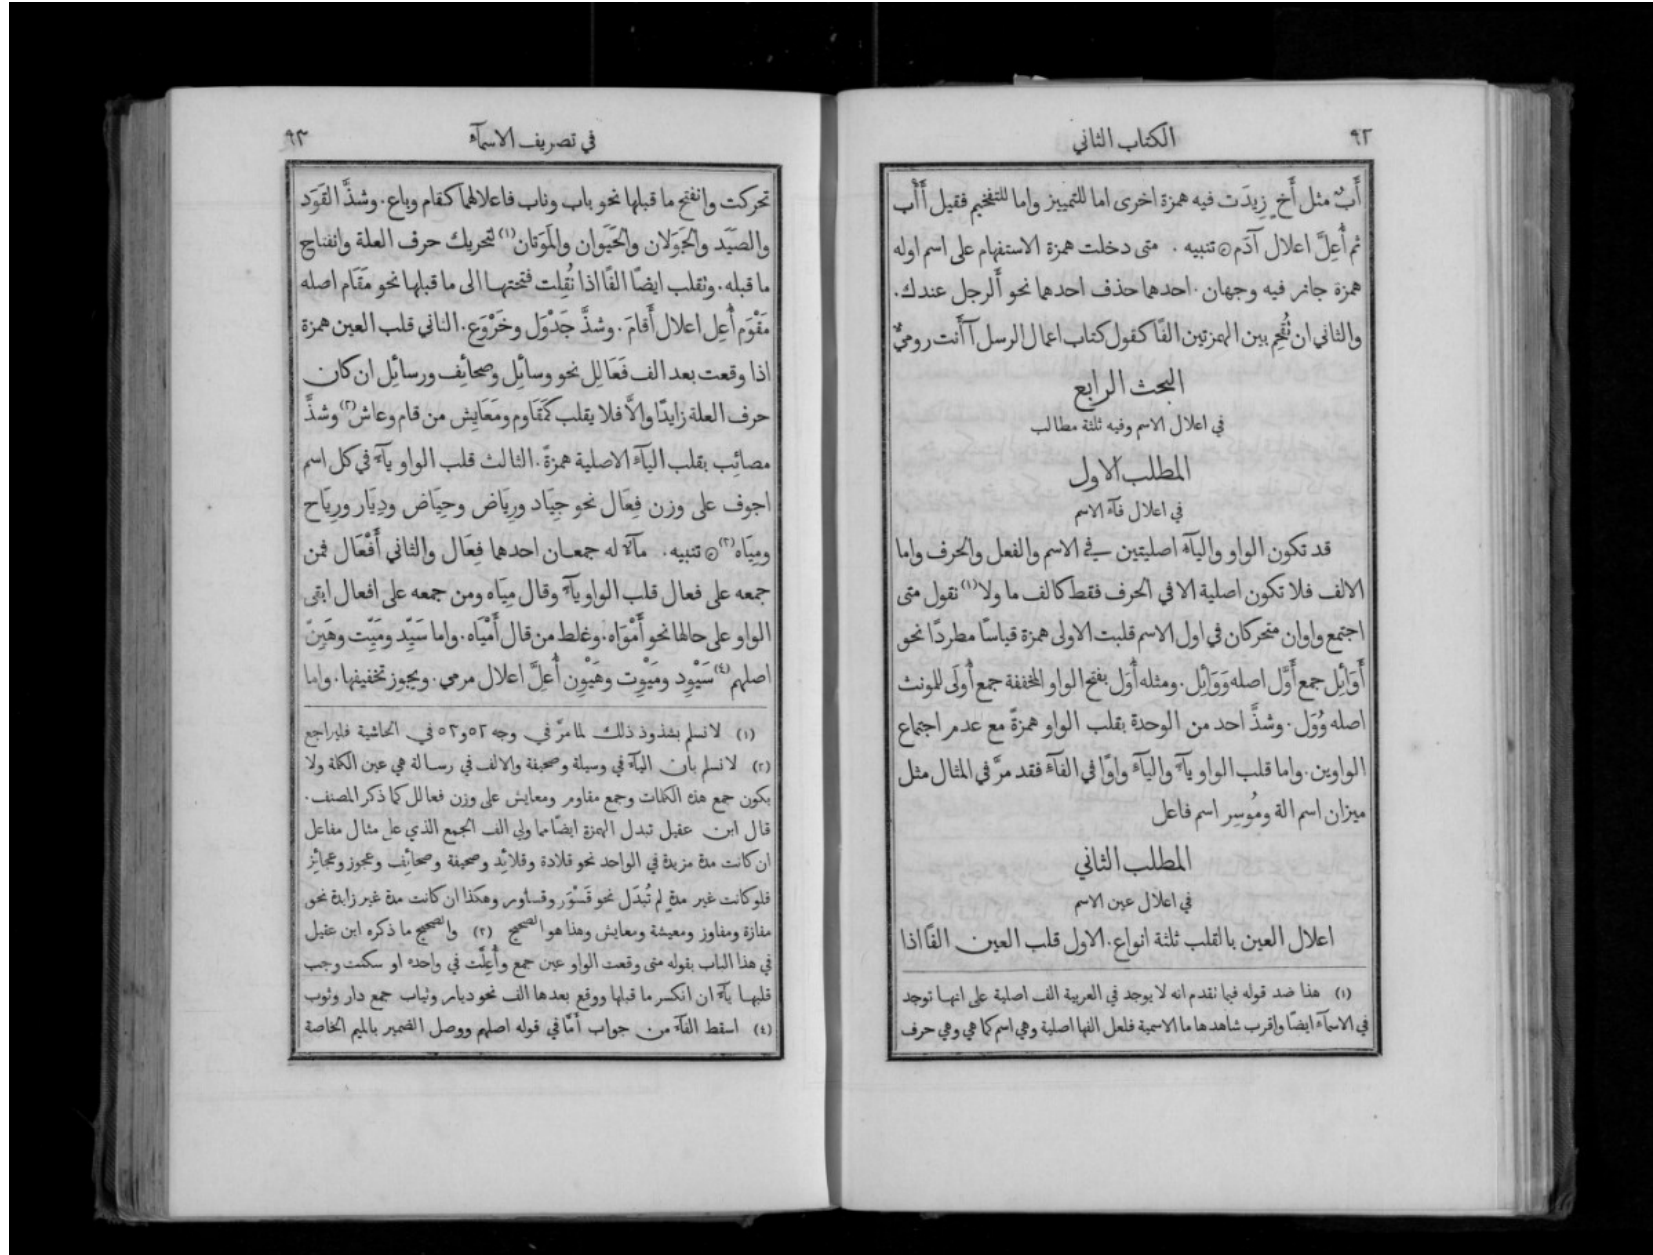 ٩٢
الكتاب الثاني
أَبٌ مثل أَخٍ زِيدَت فيه همزة اخرى اما للتمييز واما للتفخيم فقيل أَأْب
ثم أُعِلَّ اعلال آدَم ۞ تنبيه . متى دخلت همزة الاستفهام على اسم اوله
همزة جاز فيه وجهان . احدهما حذف احدهما نحو أَلرجل عندك .
والثاني ان تُقحِم بين الهمزتين الفًا كقول كتاب اعمال الرسل آأَنت روميٌّ
البحث الرابع
في اعلال الاسم وفيه ثلثة مطالب
المطلب الاول
في اعلال فآء الاسم
قد تكون الواو واليآء اصليتين في الاسم والفعل والحرف واما
الالف فلا تكون اصلية الا في الحرف فقط كالف ما ولا(١) نقول متى
اجتمع واوان متحركان في اول الاسم قلبت الاولى همزة قياسًا مطردًا نحو
أَوَائِل جمع أَوَّل اصله وَوَائِل . ومثله أُوَل بفتح الواو المخففة جمع أُولَى للمونث
اصله وُوَل . وشذَّ احد من الوحدة بقلب الواو همزةً مع عدم اجتماع
الواوين . واما قلب الواو يآءً واليآءِ واوًا في الفآءِ فقد مرَّ في المثال مثل
ميزان اسم الة ومُوسِر اسم فاعل
المطلب الثاني
في اعلال عين الاسم
اعلال العين بالقلب ثلثة انواع . الاول قلب العين الفًا اذا
(١) هذا ضد قوله فيما تقدم انه لا يوجد في العربية الف اصلية على انها توجد
في الاسمآء ايضًا واقرب شاهدها ما الاسمية فلعل الفها اصلية وهي اسم كما هي وهي حرف
في تصريف الاسمآء
٩٣
تحركت وانفتح ما قبلها نحو باب وناب فاعلالهما كقام وباع . وشذَّ القَوَد
والصَيَد والجَوَلان والحَيَوان والمَوَتان(١) لتحريك حرف العلة وانفتاح
ما قبله . ونقلب ايضًا الفًا اذا نُقِلت فتحتها الى ما قبلها نحو مَقَام اصله
مَقْوَم أُعِل اعلال أَقامَ . وشذَّ جَدْوَل وخَرْوَع . الثاني قلب العين همزة
اذا وقعت بعد الف فَعَالِل نحو وسائِل وصحائِف ورسائِل ان كان
حرف العلة زايدًا والَّا فلا يقلب كمَقَاوِم ومَعَايِش من قام وعاش(٢) وشذَّ
مصائِب بقلب اليآءِ الاصلية همزةً . الثالث قلب الواو يآءً في كل اسم
اجوف على وزن فِعَال نحو جِيَاد ورِيَاض وحِيَاض ودِيَار ورِيَاح
ومِيَاه(٣) ۞ تنبيه . مآء له جمعان احدهما فِعَال والثاني أَفْعَال فمن
جمعه على فعال قلب الواو يآءً وقال مِيَاه ومن جمعه على افعال ابقى
الواو على حالها نحو أَمْوَاه . وغلط من قال أَمْيَاه . واما سَيِّد ومَيِّت وهَيِّنٌ
اصلهم(٤) سَيْوِد ومَيْوِت وهَيْوِن أُعِلَّ اعلال مرمي . ويجوز تخفيفها . واما
(١) لا نسلم بشذوذ ذلك لما مرَّ في وجه ٥٢ و٥٣ في الحاشية فليراجع
(٢) لا نسلم بان اليآء في وسيلة وصحيفة والالف في رسالة هي عين الكلمة ولا
يكون جمع هذه الكلمات وجمع مقاوم ومعايش على وزن فعالل كما ذكر المصنف .
قال ابن عقيل تبدل الهمزة ايضًا مما ولي الف الجمع الذي على مثال مفاعل
ان كانت مدة مزيدة في الواحد نحو قلادة وقلائِد وصحيفة وصحائِف وعجوز وعجائِز
فلو كانت غير مدةٍ لم تُبدَل نحو قَسْوَر وقساور وهكذا ان كانت مدة غير زايدة نحو
مفازة ومفاوز ومعيشة ومعايش وهذا هو الصحيح (٣) والصحيح ما ذكره ابن عقيل
في هذا الباب بقوله متى وقعت الواو عين جمع وأُعِلَّت في واحده او سكنت وجب
قلبها يآءً ان انكسر ما قبلها ووقع بعدها الف نحو ديار وثياب جمع دار وثوب
(٤) اسقط الفآء من جواب أَمَّا في قوله اصلهم ووصل الضمير بالميم الخاصة